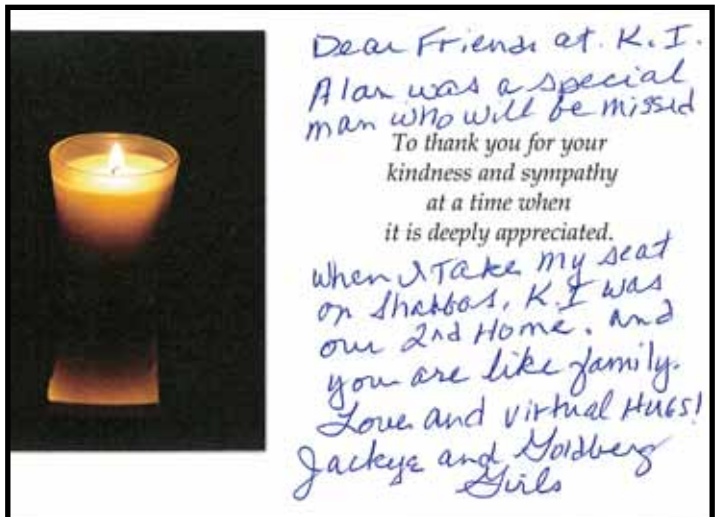 Dear Friends at K.I.
Alan was a special
man who will be missed
To thank you for your
kindness and sympathy
at a time when
it is deeply appreciated.
when I Take my seat
on Shabbos, K.I was
our 2nd Home. And
you are like family.
Love and virtual HUGS!
Jackye and Goldberg
Girls